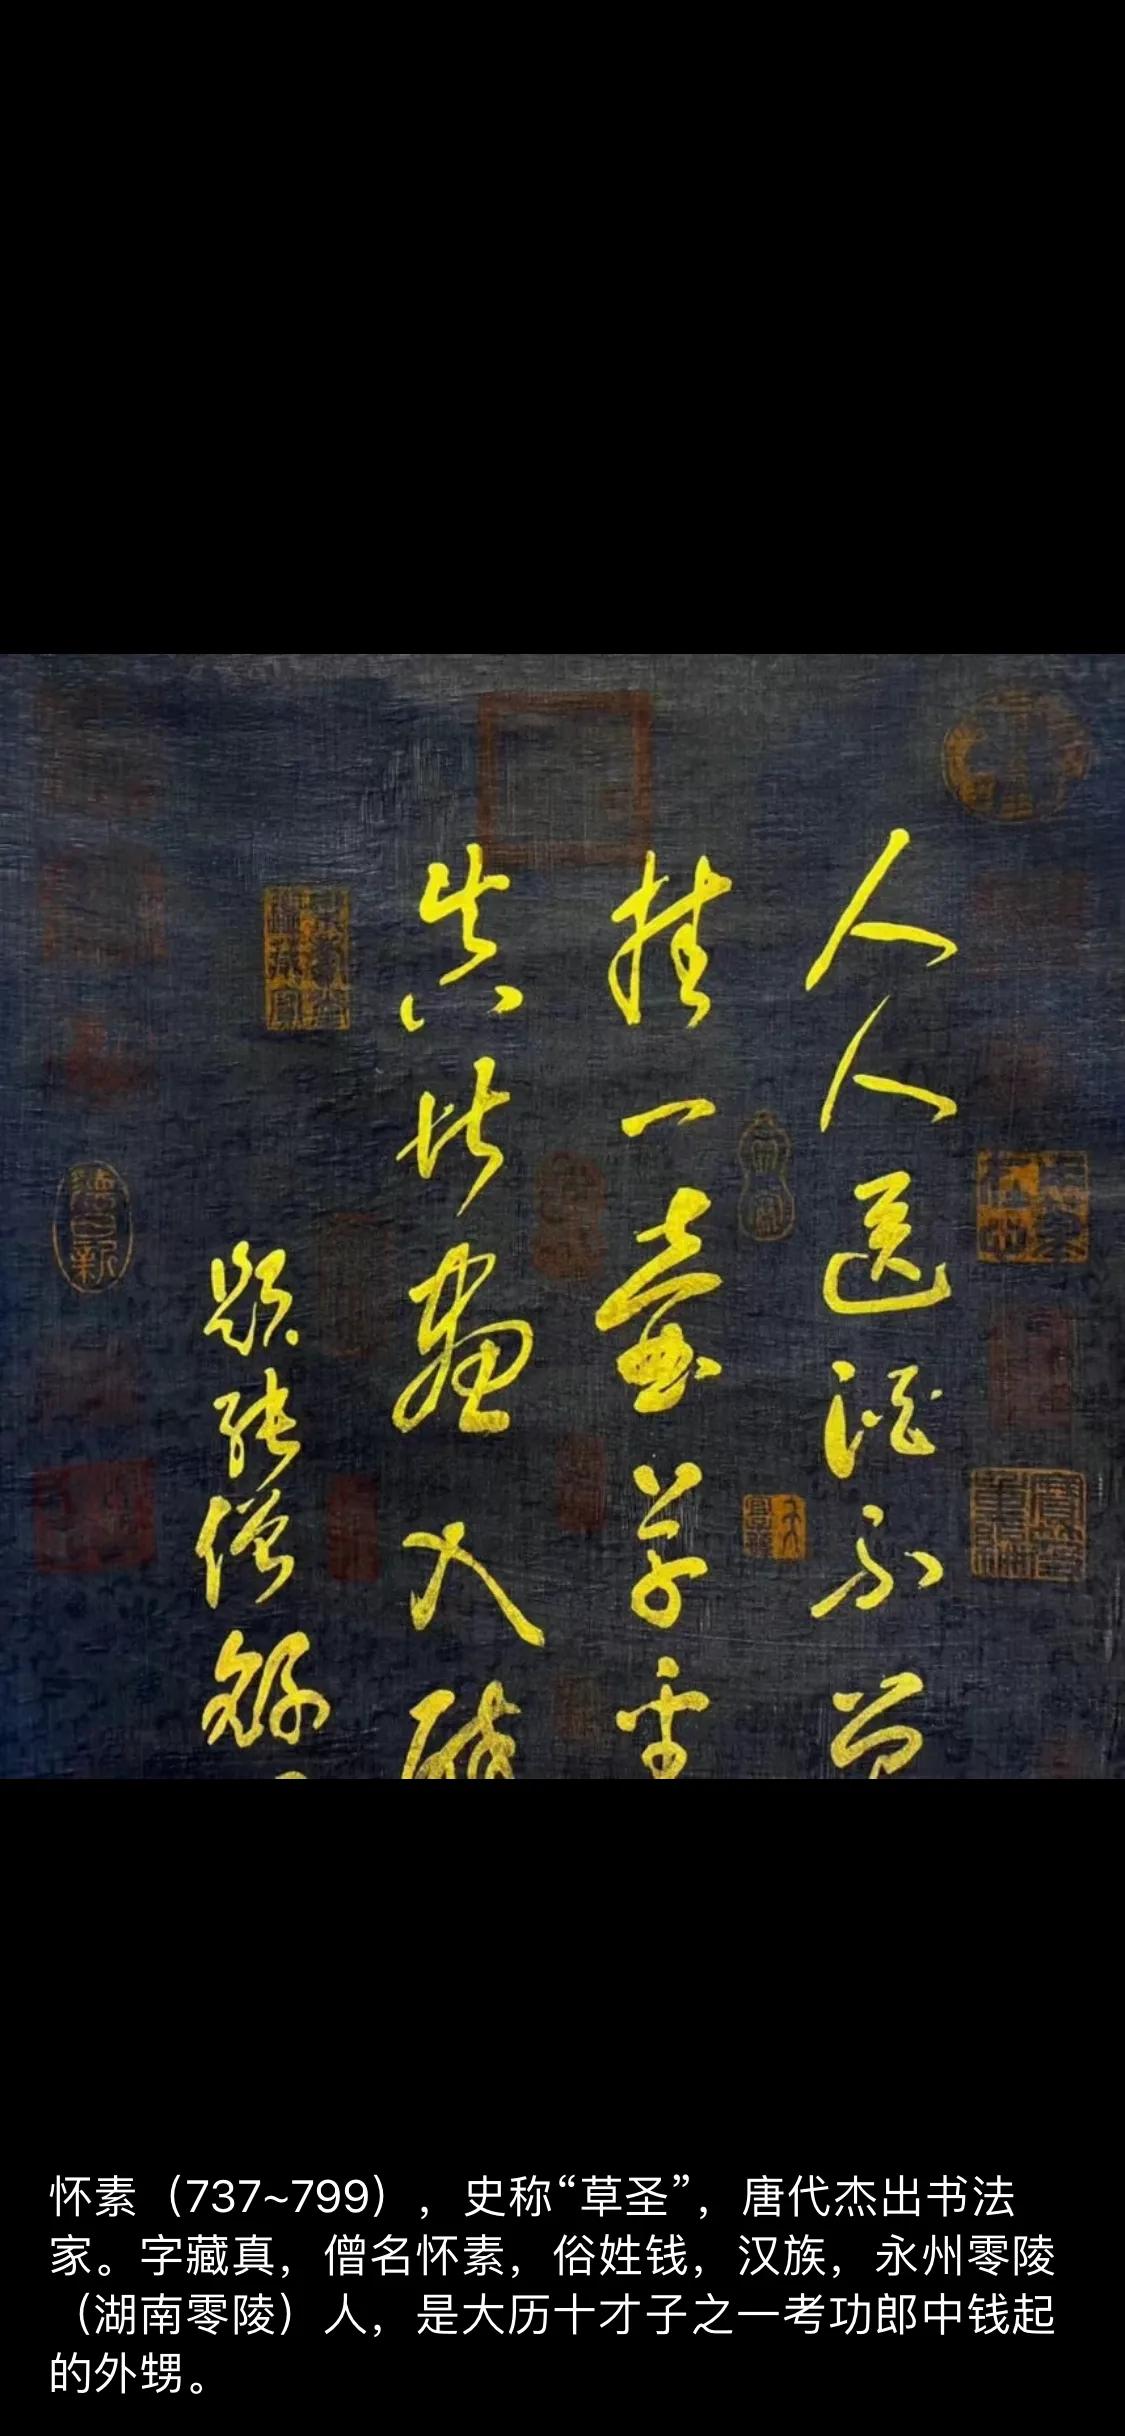 人人送酒不曾
挂一壺草聖
真堪畫入醉
題張僧繇
怀素（737~799），史称“草圣”，唐代杰出书法
家。字藏真，僧名怀素，俗姓钱，汉族，永州零陵
（湖南零陵）人，是大历十才子之一考功郎中钱起
的外甥。